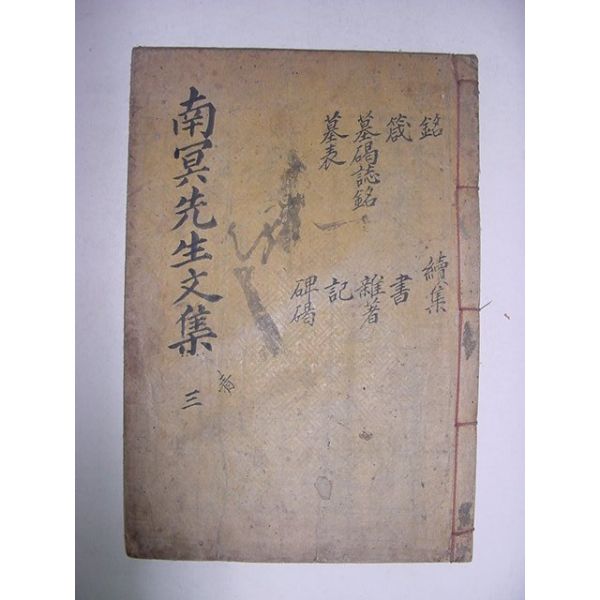 南冥先生文集
三
銘
箴
墓碣誌銘
墓表
續集
書
雜著
記
碑碣